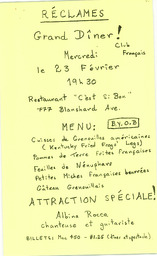 RÉCLAMES
Grand Dîner!
Club
Mercredi Français
le 23 Février
19h30
Restaurant "C'est Si Bon"
777 Blanshard Ave.
MENU: B.Y.O.B
Cuisses de Grenouilles américaines
(Kentucky Fried Frogs' Legs)
Pommes de Terre Frites Françaises
Feuilles de Nénuphars
Petites Miches Françaises beurrées
Gâteau Grenouillais
ATTRACTION SPÉCIALE!
Albina Rocca
chanteuse et guitariste
BILLETS: